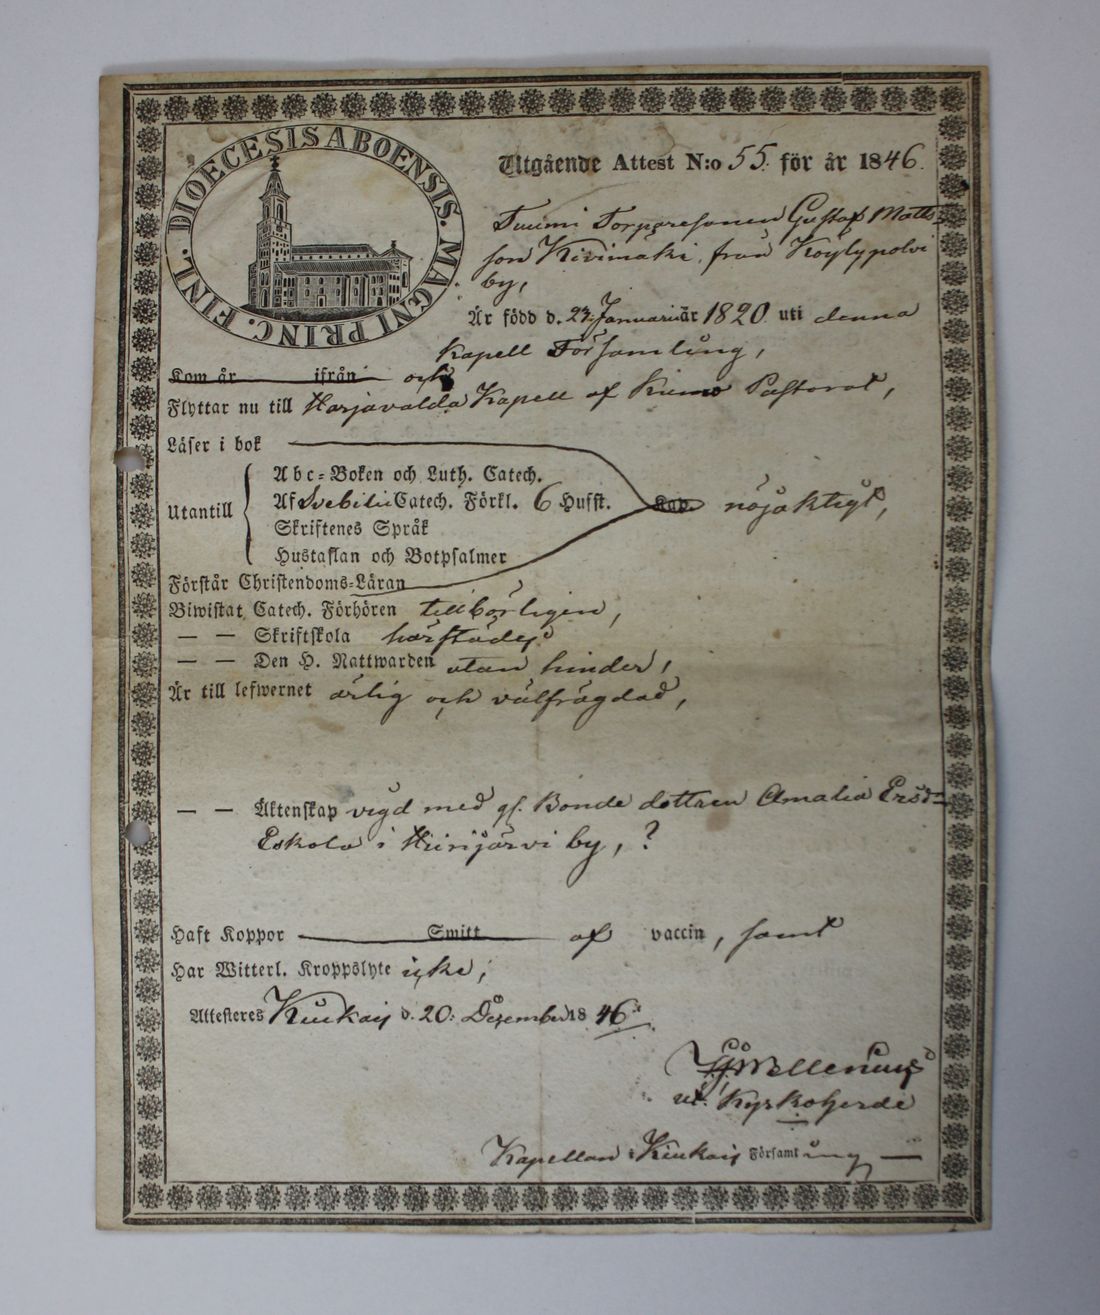 DIOECESIS ABOENSIS. MAGNI PRINC. FINL.
Utgående Attest N:o 55. för år 1846.
Torparesonen Gustaf Matts-
son Kivimäki, från Köylypolvi
by,
Är född d. 23: Januarii år 1820 uti denna
Kapell Församling,
Kom år ifrån och
Flyttar nu till Harjavalda Kapell af Kiumo Pastorat,
Läser i bok
Utantill
Abc-Boken och Luth. Catech.
Af Svebilii Catech. Förkl. 6 Hufst. Kap. nöjaktigt,
Skriftenes Språk
Hustaflan och Botpsalmer
Förstår Christendoms-Läran
Biwistat Catech. Förhören tillbörligen,
— — Skriftskola härstädes
— — Den H. Nattwarden utan hinder,
Är till lefwernet ärlig och välfrägdad,
— — Äktenskap vigd med gl. Bonde dottren Amalia Ersd-
Eskola i Hiirijärvi by, ?
Haft Koppor Smitt af vaccin, samt
Har Witterl. Kroppslyte icke,
Attesteras Kiukais d. 20: Dezember 1846.
Wellenius
vt. Kyrkoherde
Kapellan i Kiukais Församling —